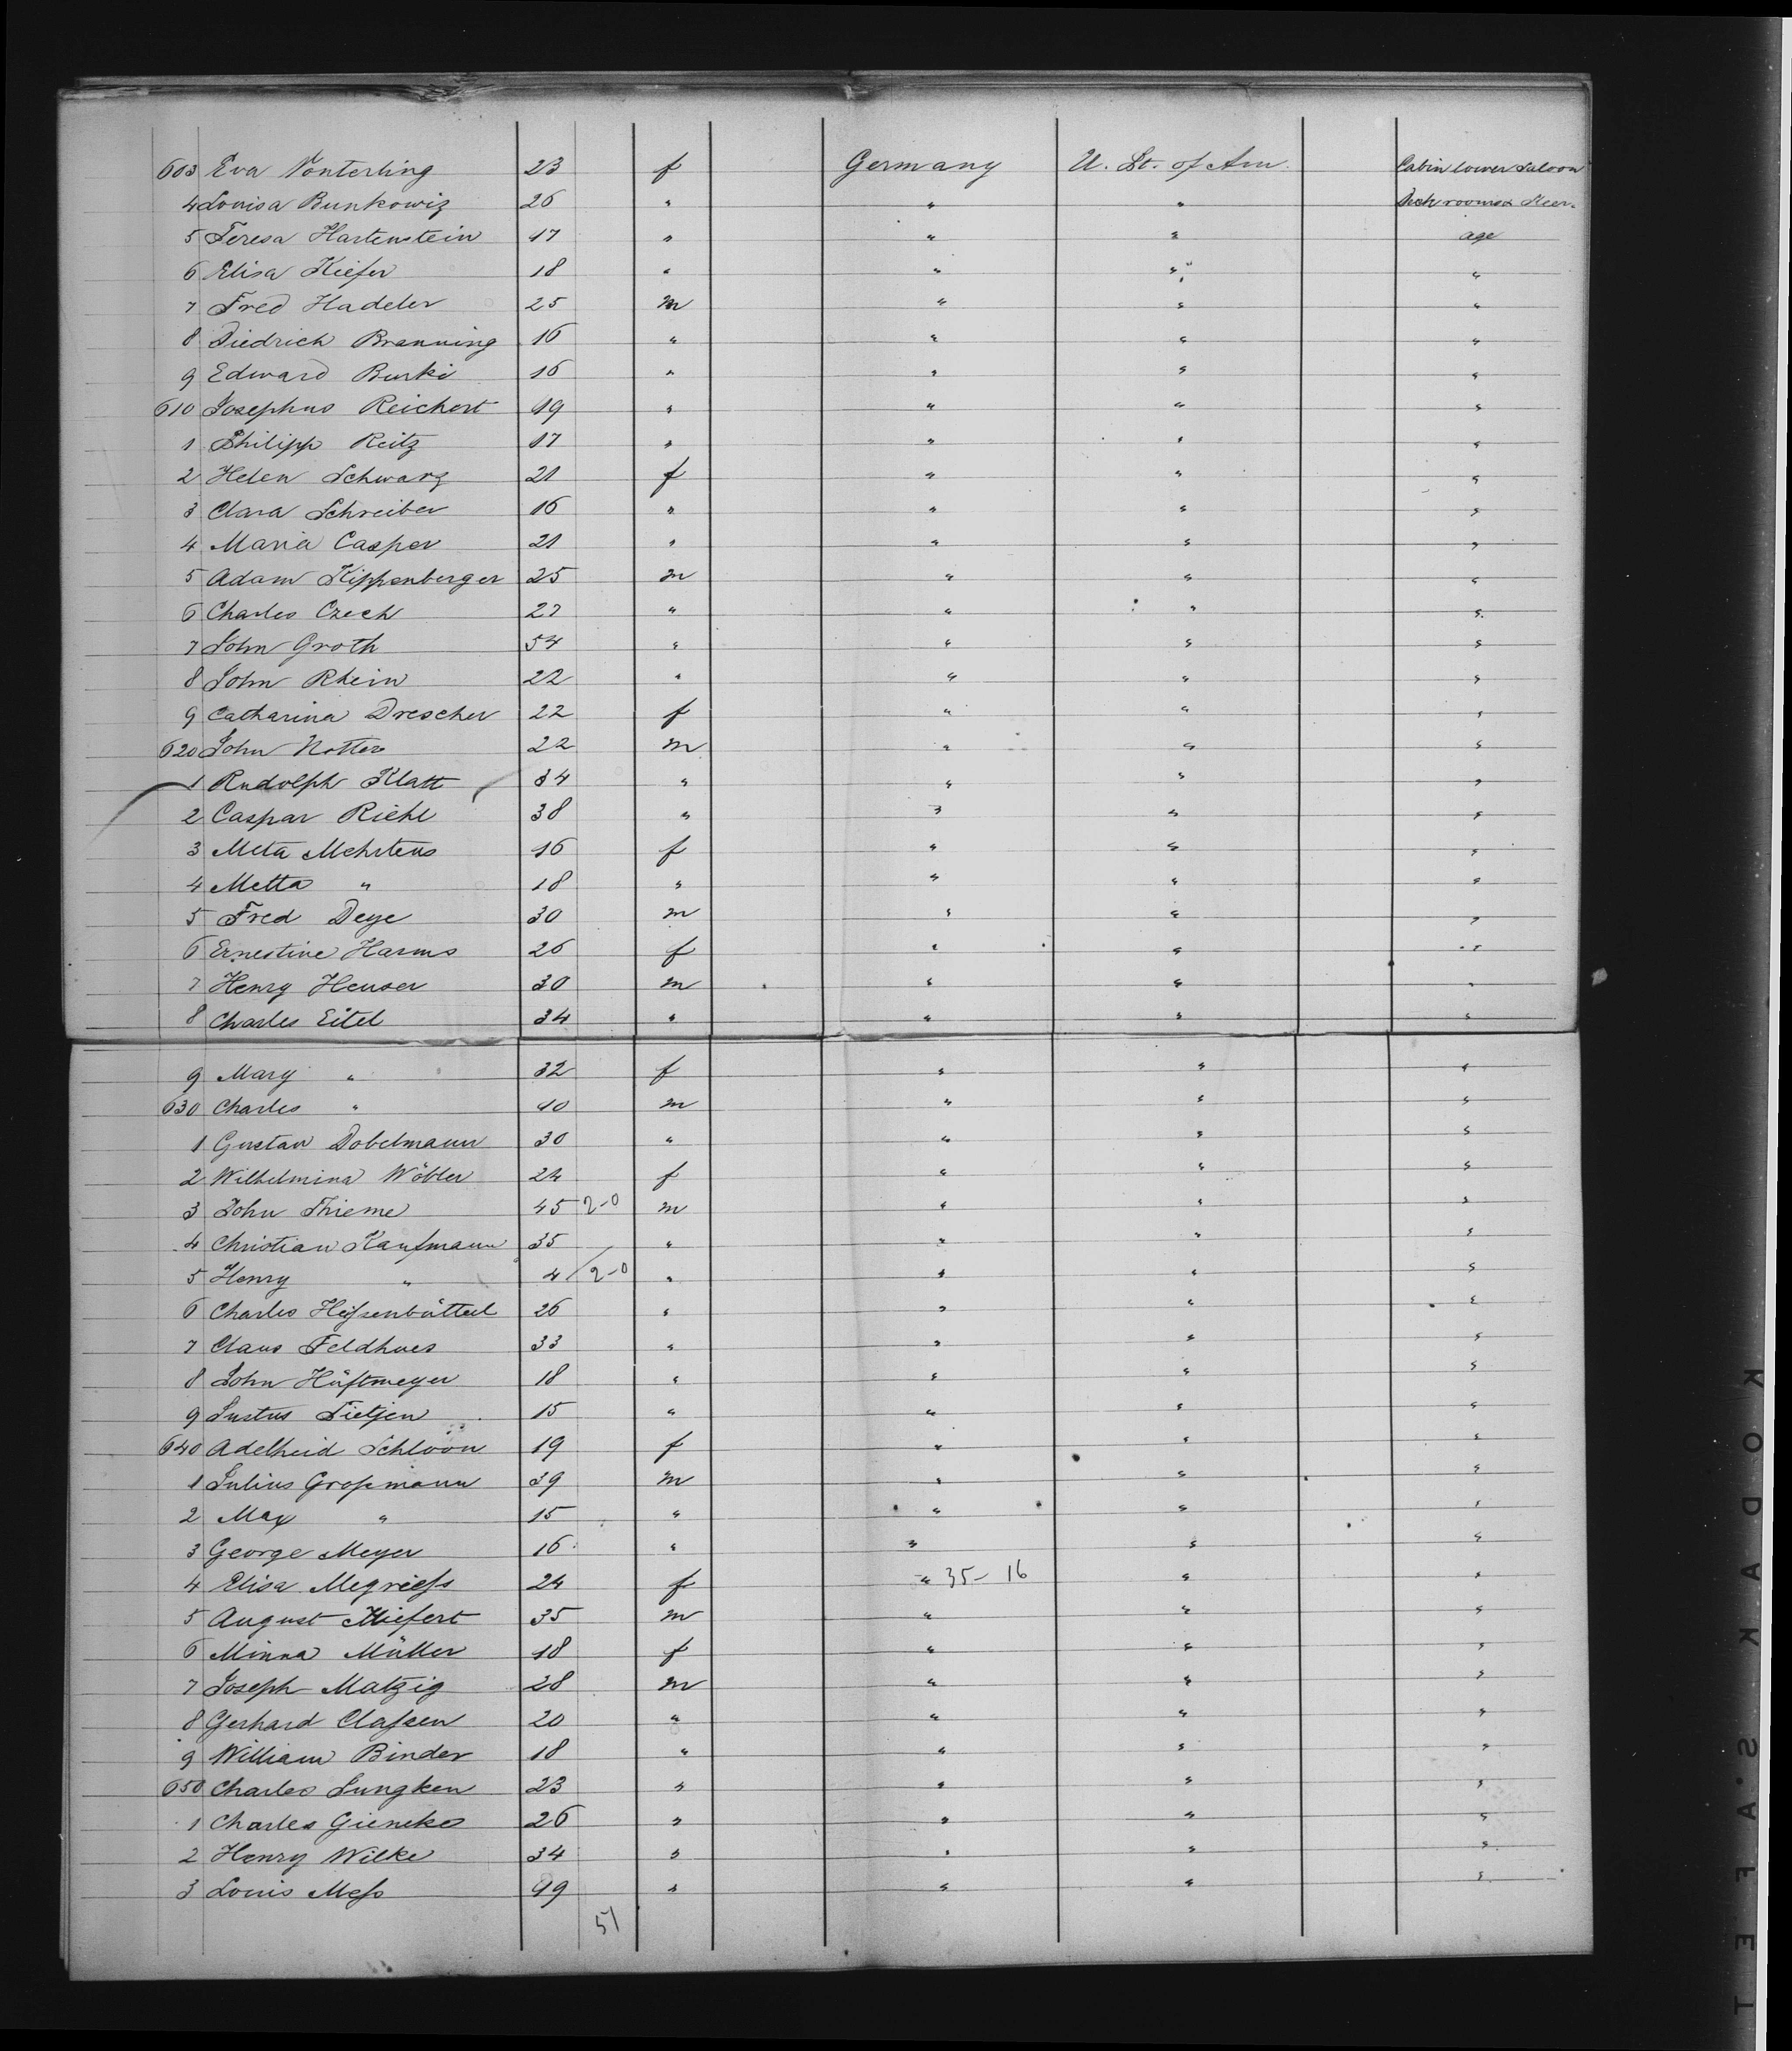 603 Eva Vonterling 23 f Germany U. St. of Am. Cabin lower saloon
4 Louisa Bunkowiz 26 " " " Deck rooms & Steer-
5 Teresa Hartenstein 17 " " " age
6 Elisa Kiefer 18 " " " "
7 Fred Hadeler 25 m " " "
8 Diedrich Branning 16 " " " "
9 Edward Burki 16 " " " "
610 Josephus Reichert 19 " " " "
1 Philipp Reitz 17 " " " "
2 Helen Schwarz 21 f " " "
3 Clara Schreiber 16 " " " "
4 Maria Casper 21 " " " "
5 Adam Kippenberger 25 m " " "
6 Charles Czech 27 " " " "
7 John Groth 54 " " " "
8 John Rhein 22 " " " "
9 Catharina Drescher 22 f " " "
620 John Notter 22 m " " "
1 Rudolph Klatt 34 " " " "
2 Caspar Riehl 38 " " " "
3 Meta Mehrtens 16 f " " "
4 Metta " 18 " " " "
5 Fred Deye 30 m " " "
6 Ernestine Harms 26 f " " "
7 Henry Heuser 30 m " " "
8 Charles Eitel 34 " " " "
9 Mary " 32 f " " "
630 Charles " 10 m " " "
1 Gustav Dobelmann 30 " " " "
2 Wilhelmina Wöbler 24 f " " "
3 John Thieme 45 2-0 m " " "
4 Christian Kaufmann 35 " " " "
5 Henry " 4 / 2-0 " " " "
6 Charles Heißenbüttel 26 " " " "
7 Claus Feldhues 33 " " " "
8 John Hüftmeyer 18 " " " "
9 Justus Tietjen 15 " " " "
640 Adelheid Schloön 19 f " " "
1 Julius Großmann 39 m " " "
2 Max " 15 " " " "
3 George Meyer 16 " " " "
4 Elisa Megrieß 24 f " 35-16 " "
5 August 35 m " " "
6 Minna Müller 18 f " " "
7 Joseph Matzig 28 m " " "
8 Gerhard Claßen 20 " " " "
9 William Binder 18 " " " "
650 Charles Jungken 23 " " " "
1 Charles Gieneke 26 " " " "
2 Henry Wilke 34 " " " "
3 Louis Meß 19 " " " "
51
KODAK·SAFET